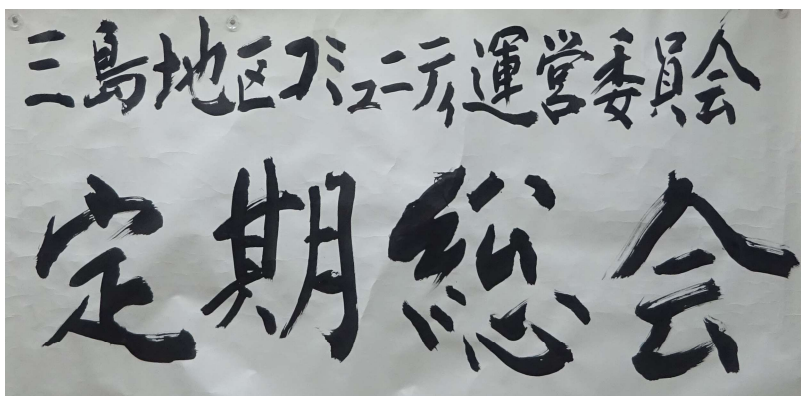 三島地区コミュニティ運営委員会
定期総会